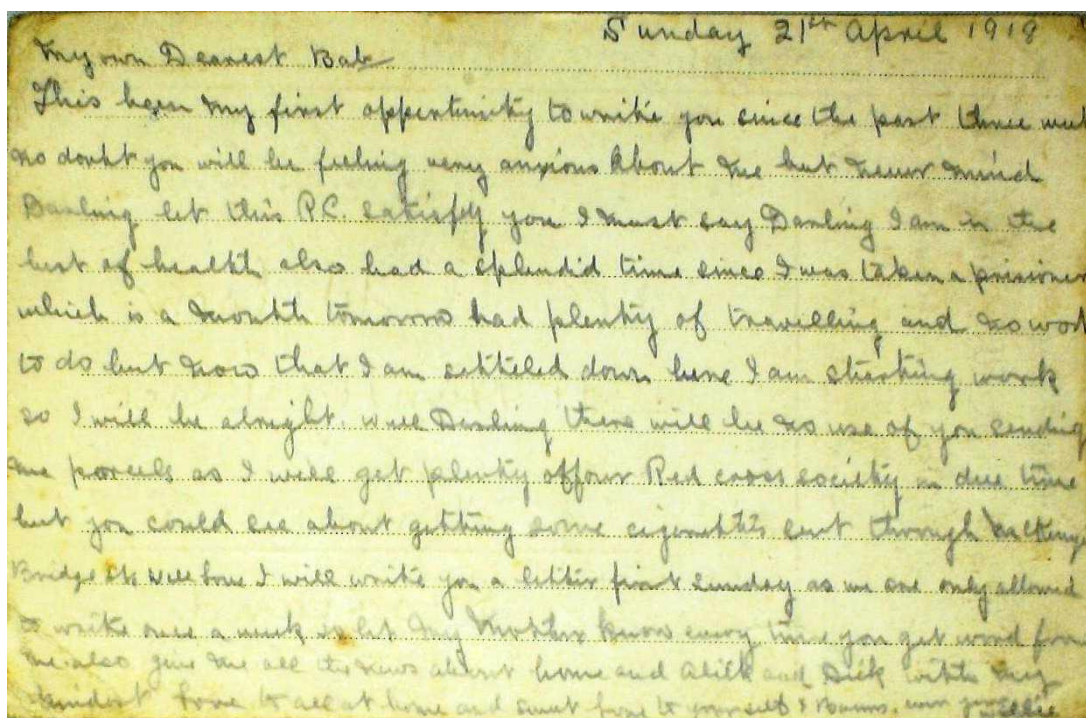 Sunday 21st April 1918
My own Dearest Bab
This been my first oppertunity to write you since the past three
no doubt you will be feeling very anxious about me but never mind
Darling let this P.C. satisfy you I must say Darling I am in the
best of health also had a splendid time since I was taken a prisioner
which is a month tomorrow had plenty of travelling and no work
to do but now that I am setteled down here I am starting work
so I will be alright. Well Darling there will be no use of you sending
me parcels as I will get plenty off our Red cross society in due time
but you could see about getting some sent through
Bridge I will write you a letter first Sunday as we are only allowed
to write once a week so let my Mother know every time you get word from
me also give me all the news about home and and Dick with my
kindest love to all at home and sweet love to yourself